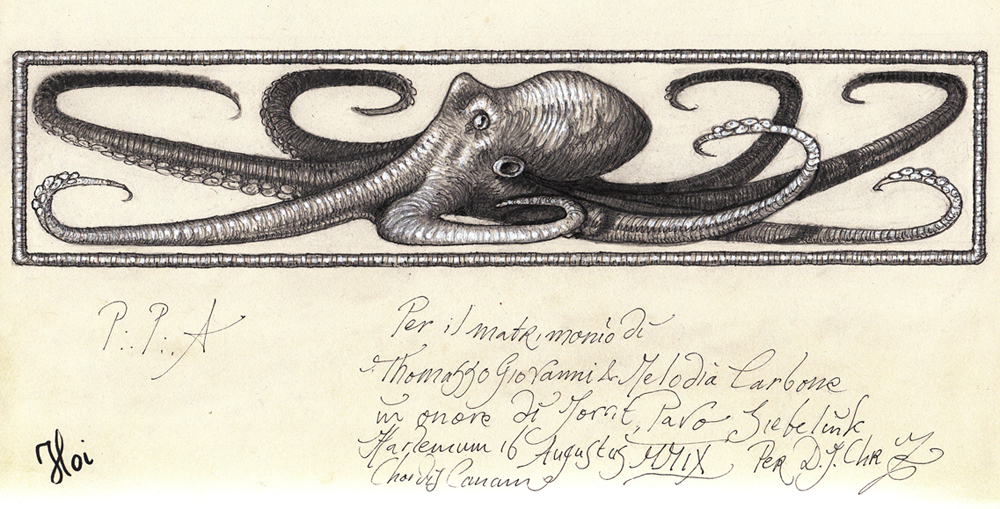 P.. P.. A
Per il matrimonio di
Thomasso Giovanni & Melodia Carbone
in onore di Jorrit, Pavo Siebelink
Harlemum 16 Augustus MMIX Per D.J. Chr
Canam
Hoi